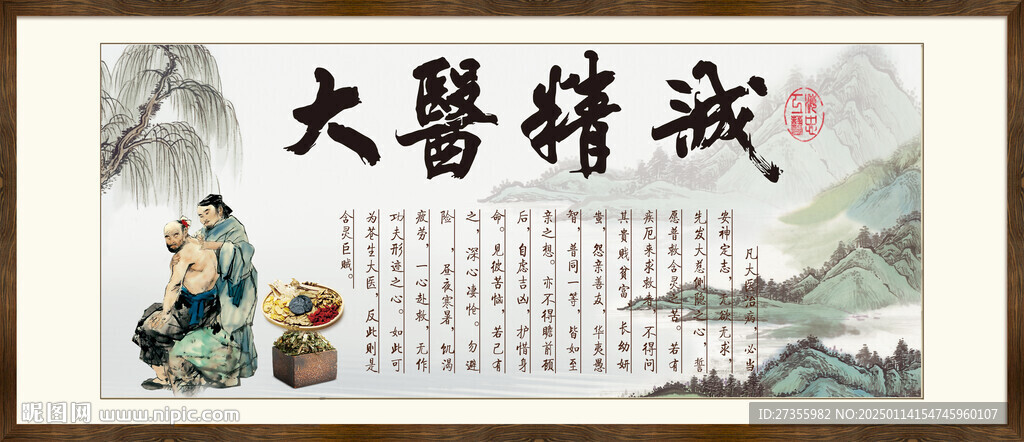 大醫精誠
凡大医治病，必当
安神定志，无欲无求，
先发大慈恻隐之心，誓
愿普救含灵之苦。若有
疾厄来求救者，不得问
其貴賤貧富，长幼妍
蚩，怨亲善友，华夷愚
智，普同一等，皆如至
亲之想。亦不得瞻前顾
后，自虑吉凶，护惜身
命。见彼苦恼，若己有
之，深心凄怆。勿避
险，昼夜寒暑，饥渴
疲劳，一心赴救，无作
功夫形迹之心。如此可
为苍生大医，反此则是
含灵巨贼。
昵图网 www.nipic.com
ID:27355982 NO:20250114154745960107